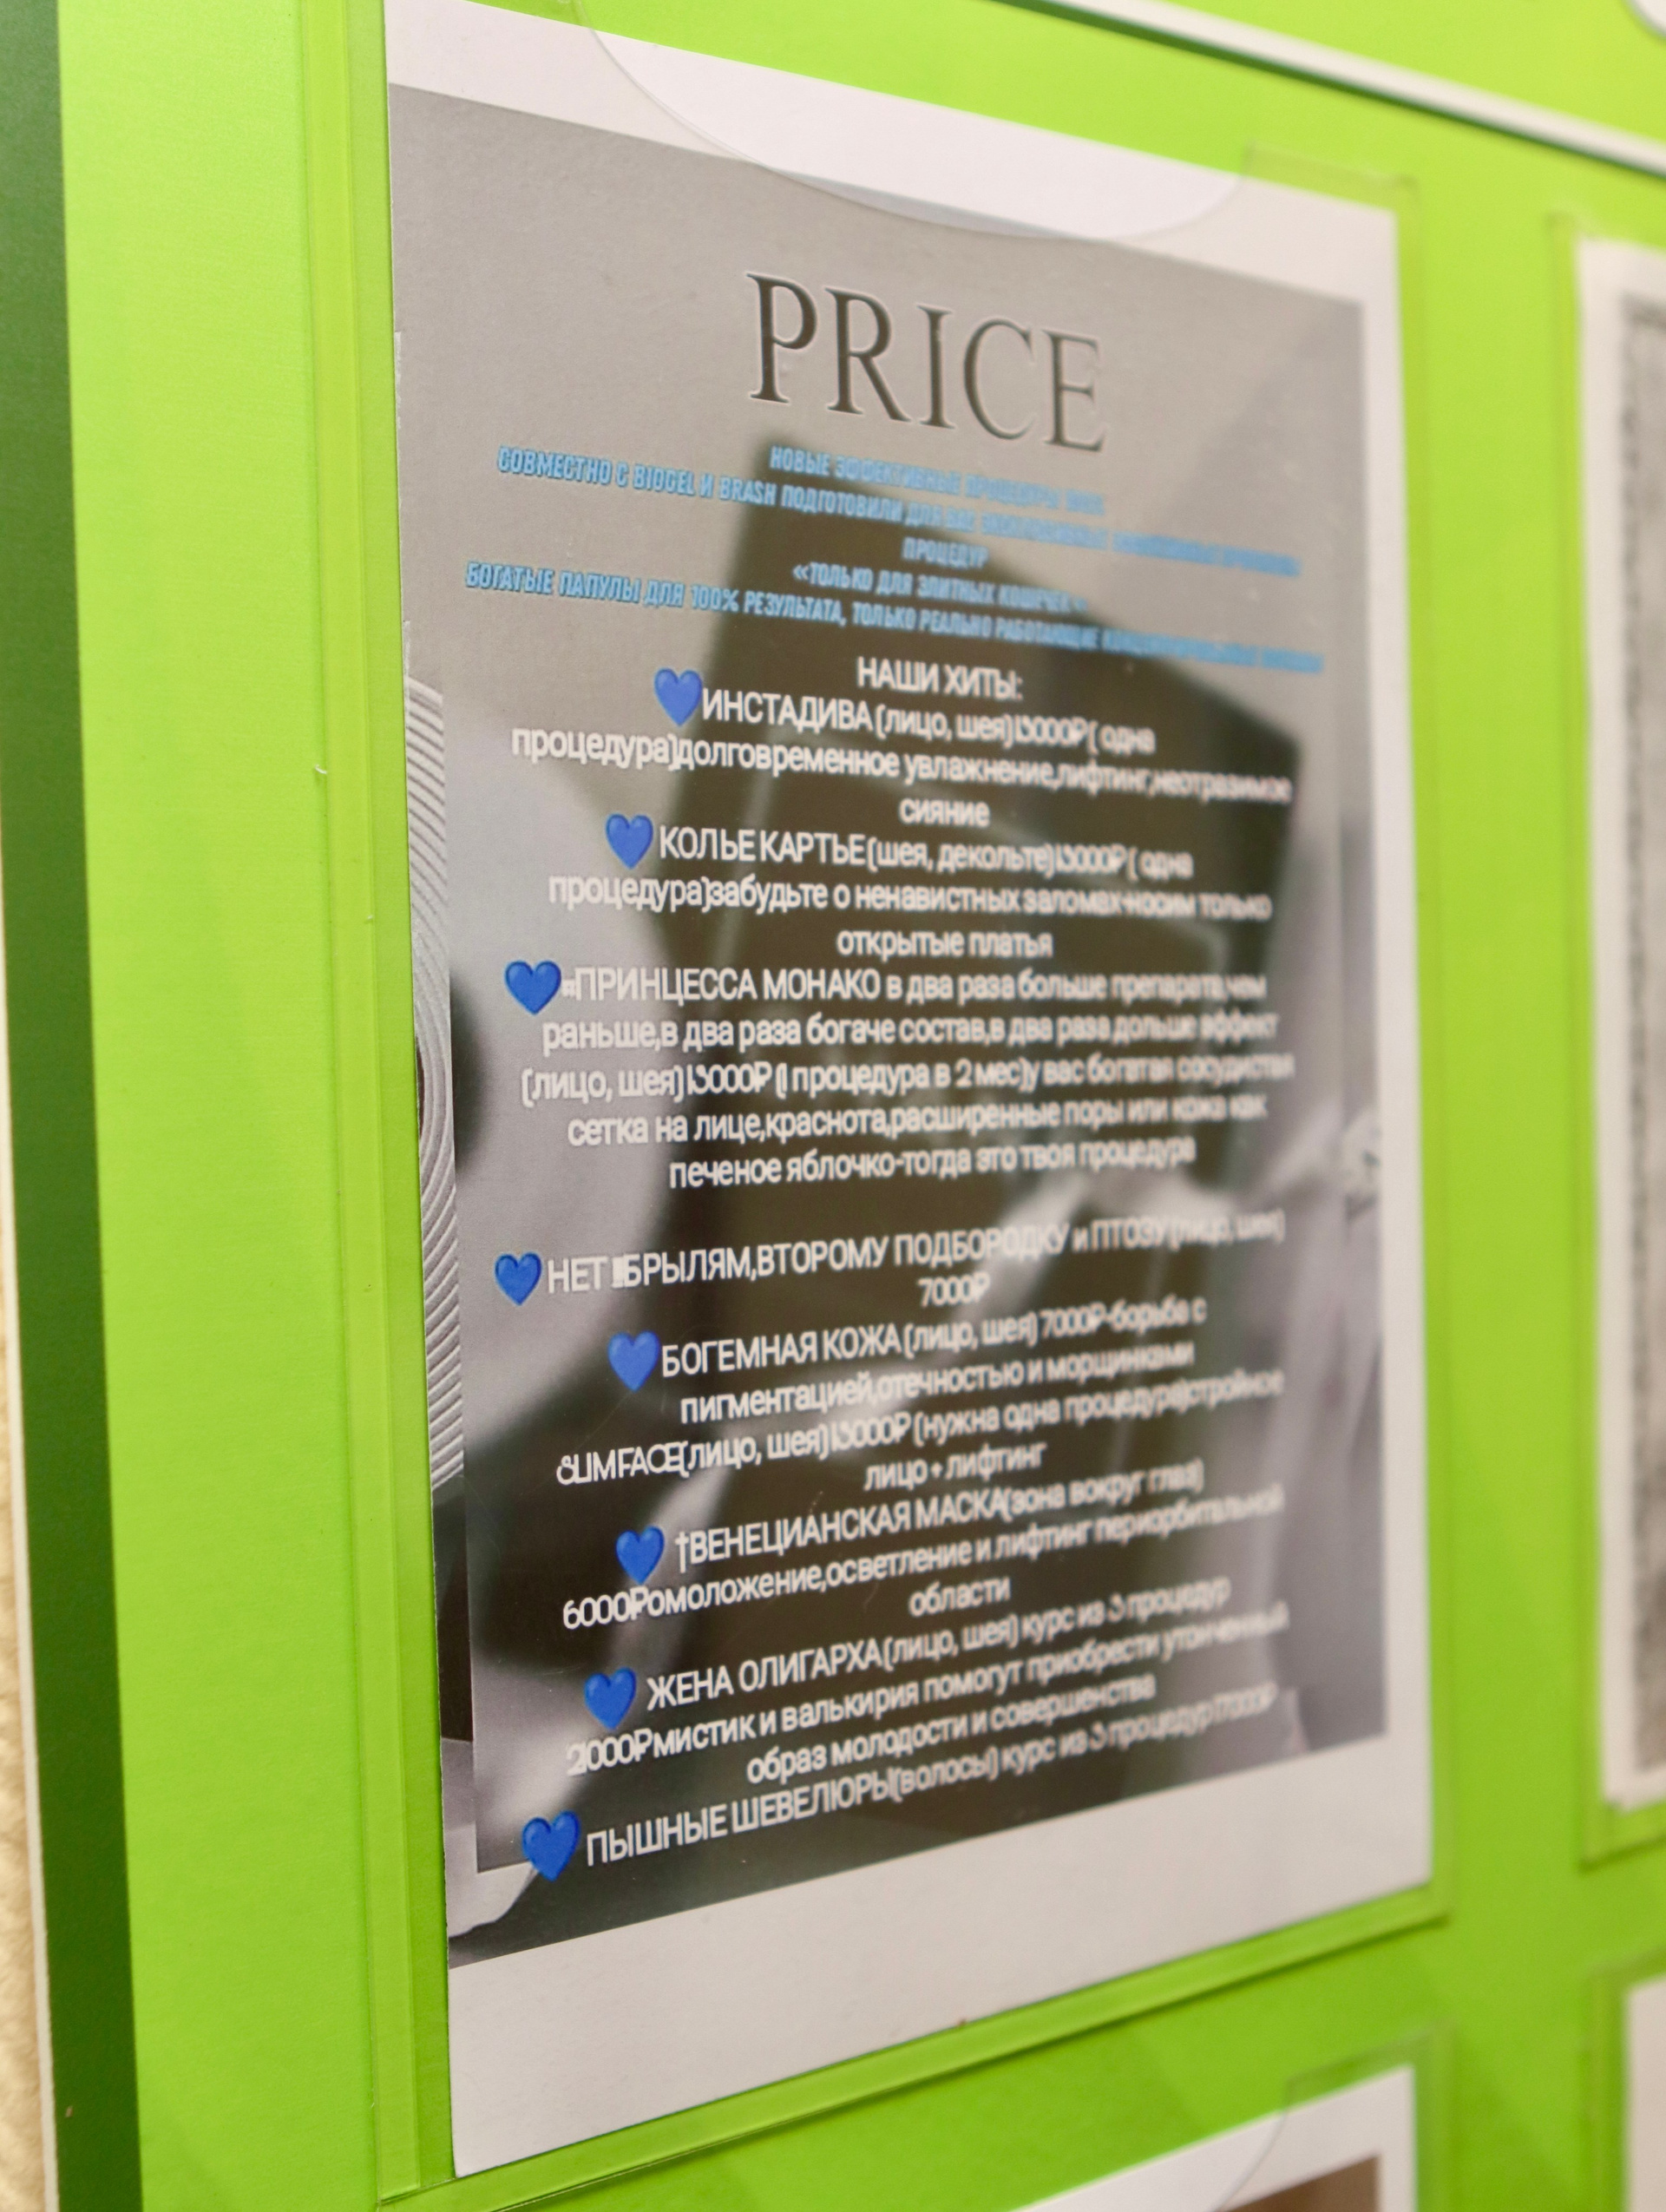 PRICE
НОВЫЕ ЭФФЕКТИВНЫЕ ПРОЦЕДУРЫ
СОВМЕСТНО С BIOGEL И BRASH ПОДГОТОВИЛИ ДЛЯ ВАС
ПРОЦЕДУР
«ТОЛЬКО ДЛЯ ЭЛИТНЫХ КОШЕЧЕК»
БОГАТЫЕ ПАПУЛЫ ДЛЯ 100% РЕЗУЛЬТАТА, ТОЛЬКО РЕАЛЬНО РАБОТАЮЩИЕ
НАШИ ХИТЫ:
💙ИНСТАДИВА(лицо, шея)13000₽( одна
процедура)долговременное увлажнение,лифтинг,неотразимое
сияние
💙КОЛЬЕ КАРТЬЕ(шея, декольте)13000₽( одна
процедура)забудьте о ненавистных заломах-носим только
открытые платья
💙ПРИНЦЕССА МОНАКО в два раза больше препарата,чем
раньше,в два раза богаче состав,в два раза дольше эффект
(лицо, шея)13000₽ (1 процедура в 2 мес)у вас богатая сосудистая
сетка на лице,краснота,расширенные поры или кожа как
печеное яблочко-тогда это твоя процедура
💙НЕТ!!!БРЫЛЯМ,ВТОРОМУ ПОДБОРОДКУ и ПТОЗУ(лицо, шея)
7000₽
💙БОГЕМНАЯ КОЖА(лицо, шея) 7000₽-борьба с
пигментацией,отечностью и морщинками
SLIMFACE(лицо, шея)13000₽ (нужна одна процедура)стройное
лицо+лифтинг
💙 †ВЕНЕЦИАНСКАЯ МАСКА(зона вокруг глаз)
6000₽омоложение,осветление и лифтинг периорбитальной
области
💙 ЖЕНА ОЛИГАРХА(лицо, шея) курс из 3 процедур
21000₽мистик и валькирия помогут приобрести утонченный
образ молодости и совершенства
💙 ПЫШНЫЕ ШЕВЕЛЮРЫ(волосы) курс из 3 процедур